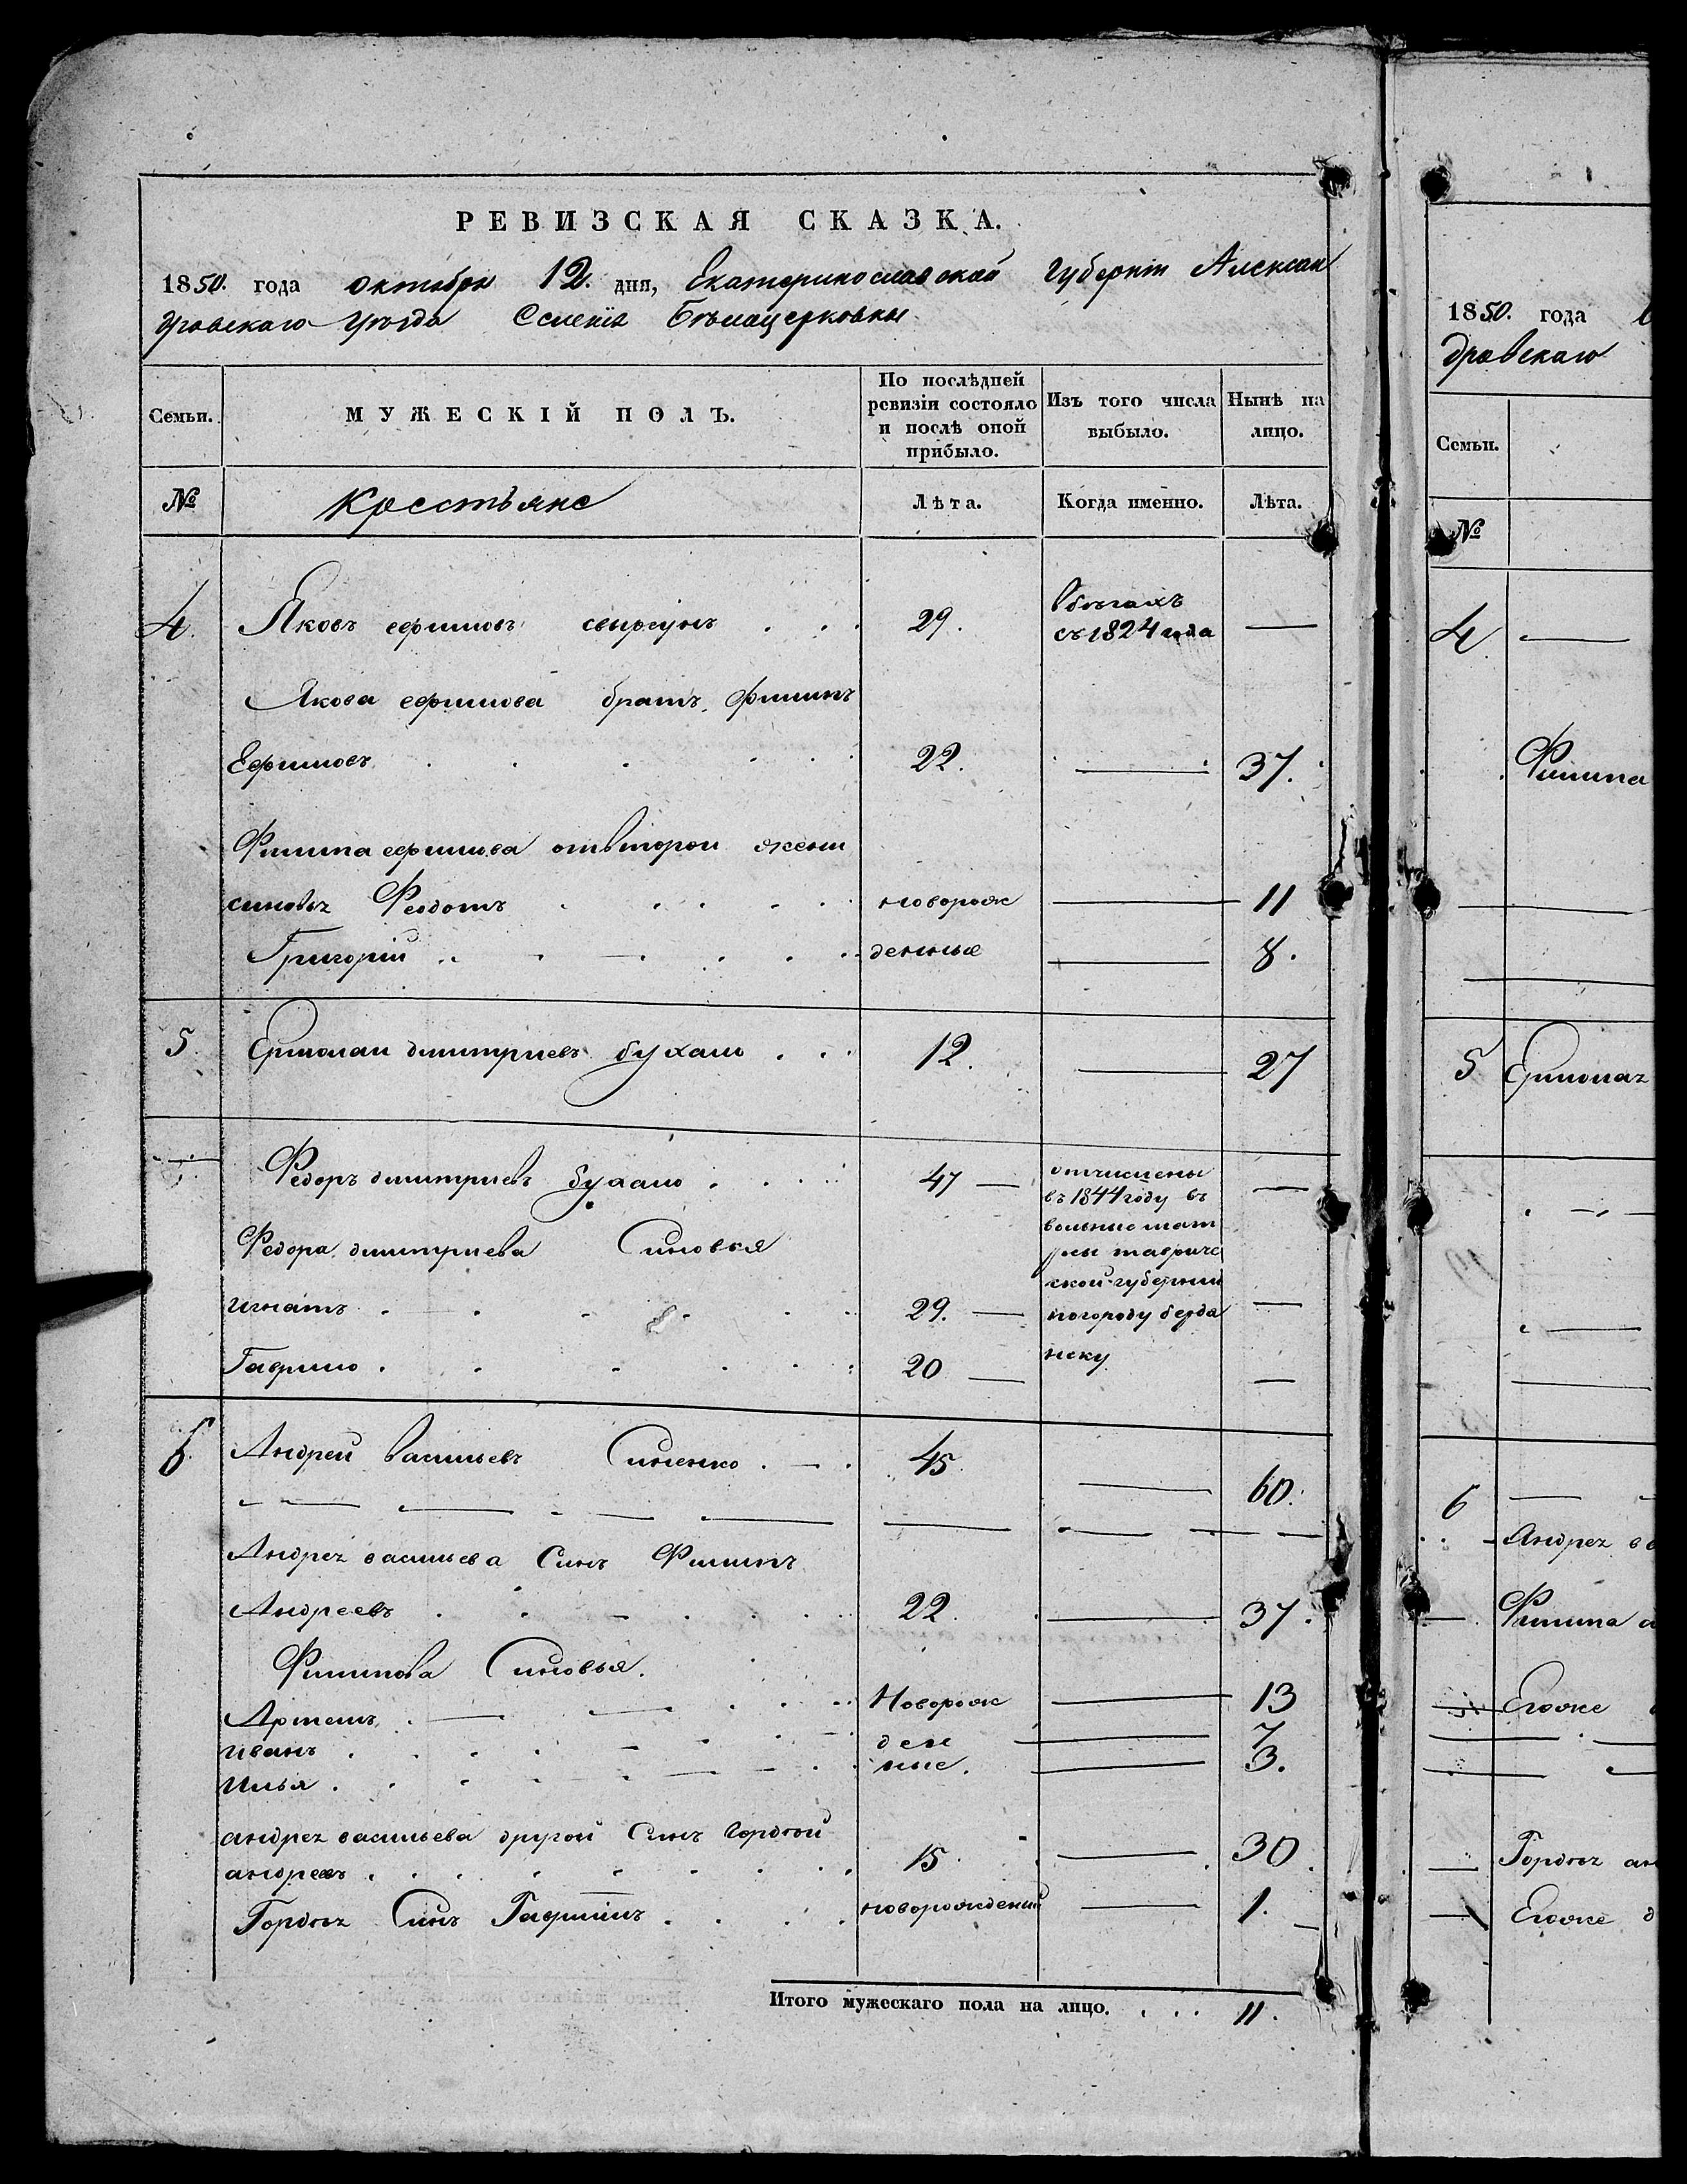 РЕВИЗСКАЯ СКАЗКА.
1850. года октября 12. дня, Екатеринославской Губернiи Алексан
дровскаго уѣзда Селенiя Бѣлацерковки
Семьи. МУЖЕСКІЙ ПОЛЪ. По послѣдней ревизіи состояло и послѣ оной прибыло. Изъ того числа выбыло. Нынѣ на лицо.
№ Крестьяне Лѣта. Когда именно. Лѣта.
4. Яковъ ефимовъ свыргунъ . . . 29. Вбѣгахъ съ 1824 года —
Якова ефимова братъ Филипъ
Ефимовъ 22. — 37.
Филипа ефимова отвторои жени
синовъя Феодотъ новорож — 11
Григорiй денныя — 8.
5 Ермолаи дмитриевъ бухало . . . 12. — 27
Федоръ дмитриевъ бухало . . . 47 — отчислены —
въ 1844 году въ
Федора дмитриева Синовья вольние мат
росы тавриче
ской губернии
игнатъ 29. — погороду бердя —
Гаврило 20 — нску —
6 Андреи васильевъ Синенко . — . 45 — 60.
Андрея васильева Синъ Филипъ
Андреевъ 22. — 37.
Филипова Синовья.
Артемъ Новорож — 13
иванъ ден — 7
илья ные. — 3.
андрея васильева другои Синъ Гордѣй
андреевъ 15. — 30
Гордѣя Синъ Гаврiилъ новорождений — 1.
Итого мужескаго пола на лицо. . . . 11.
1850. года
дровскаго
Семьи.
№
4 —
Филипа
5 Ермолая
6 —
Андрея ва
Филипа а
Егоже
Гордѣя ан
Егоже д